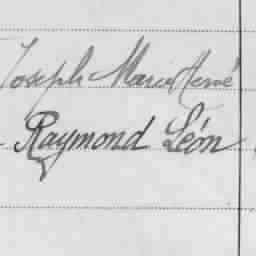 Joseph Marie René
Raymond Léon